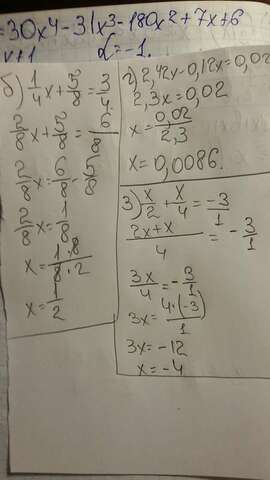 =30x⁴-31x³-180x²+7x+6
x+1 α=-1.
б) 1/4x+5/8=3/4
2/8x+5/8=6/8
2/8x=6/8-5/8
2/8x=1/8
x=1·8/8·2
x=1/2
2,42x-0,12x=0,02
2,3x=0,02
x=0,02/2,3
x=0,0086.
3) x/2+x/4=-3/1
2x+x/4=-3/1
3x/4=-3/1
3x=4·(-3)/1
3x=-12
x=-4